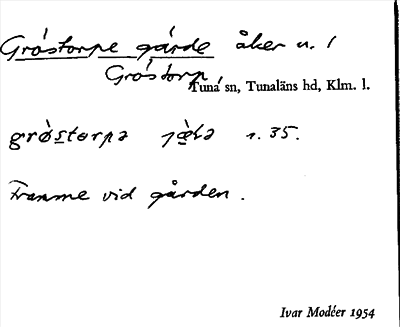 Gröstorpe gärde åker n. 1
Gröstorp
Tuna sn, Tunaläns hd, Klm. l.
grø̀storpə jæ̀ɖə 1. 35.
Framme vid gården.
Ivar Modéer 1954